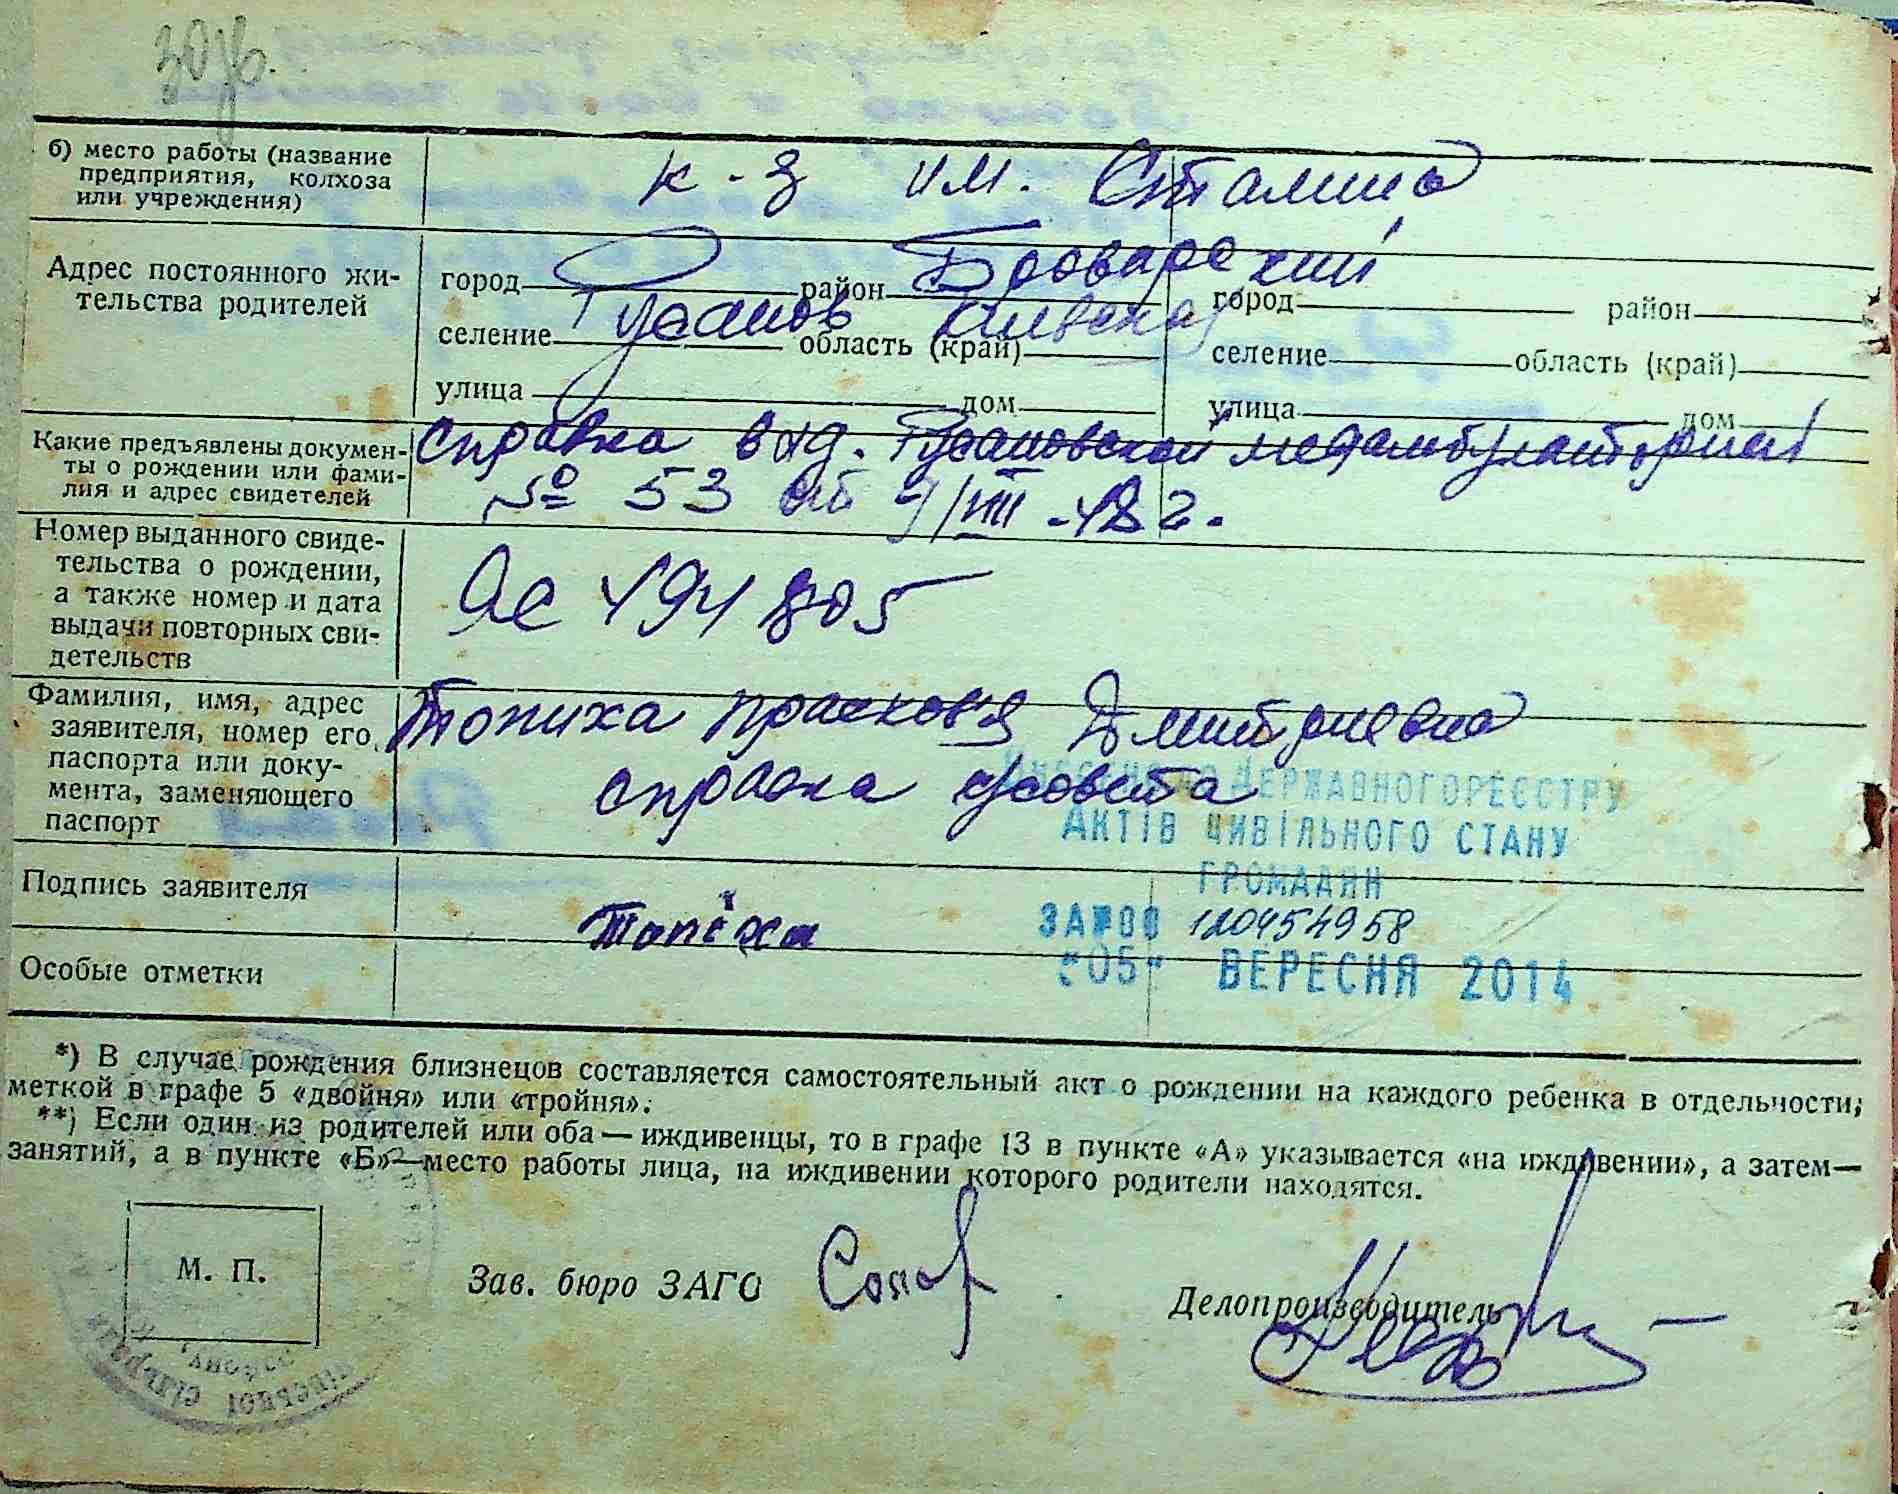 б) место работы (название
предприятия, колхоза
или учреждения)
к-з им. Сталина
Адрес постоянного жи-
тельства родителей
город район Броварский
селение Русанов область (край) Киевская
улица дом
город район
селение область (край)
улица дом
Какие предъявлены докумен-
ты о рождении или фами-
лия и адрес свидетелей
справка выд. Русановской медамбулаторией
№ 53 от 9/VIII-48 г.
Номер выданного свиде-
тельства о рождении,
а также номер и дата
выдачи повторных сви-
детельств
494805
Фамилия, имя, адрес
заявителя, номер его
паспорта или доку-
мента, заменяющего
паспорт
Топиха Прасковья Дмитриевна
справка с/совета
ДЕРЖАВНОГО РЕЄСТРУ
АКТІВ ЦИВІЛЬНОГО СТАНУ
ГРОМАДЯН
Подпись заявителя
Топіха
ЗА №00 120454958
"05" ВЕРЕСНЯ 2014
Особые отметки
*) В случае рождения близнецов составляется самостоятельный акт о рождении на каждого ребенка в отдельности,
меткой в графе 5 «двойня» или «тройня».
**) Если один из родителей или оба — иждивенцы, то в графе 13 в пункте «А» указывается «на иждивении», а затем —
занятий, а в пункте «Б» — место работы лица, на иждивении которого родители находятся.
М. П.
Зав. бюро ЗАГС
Делопроизводитель